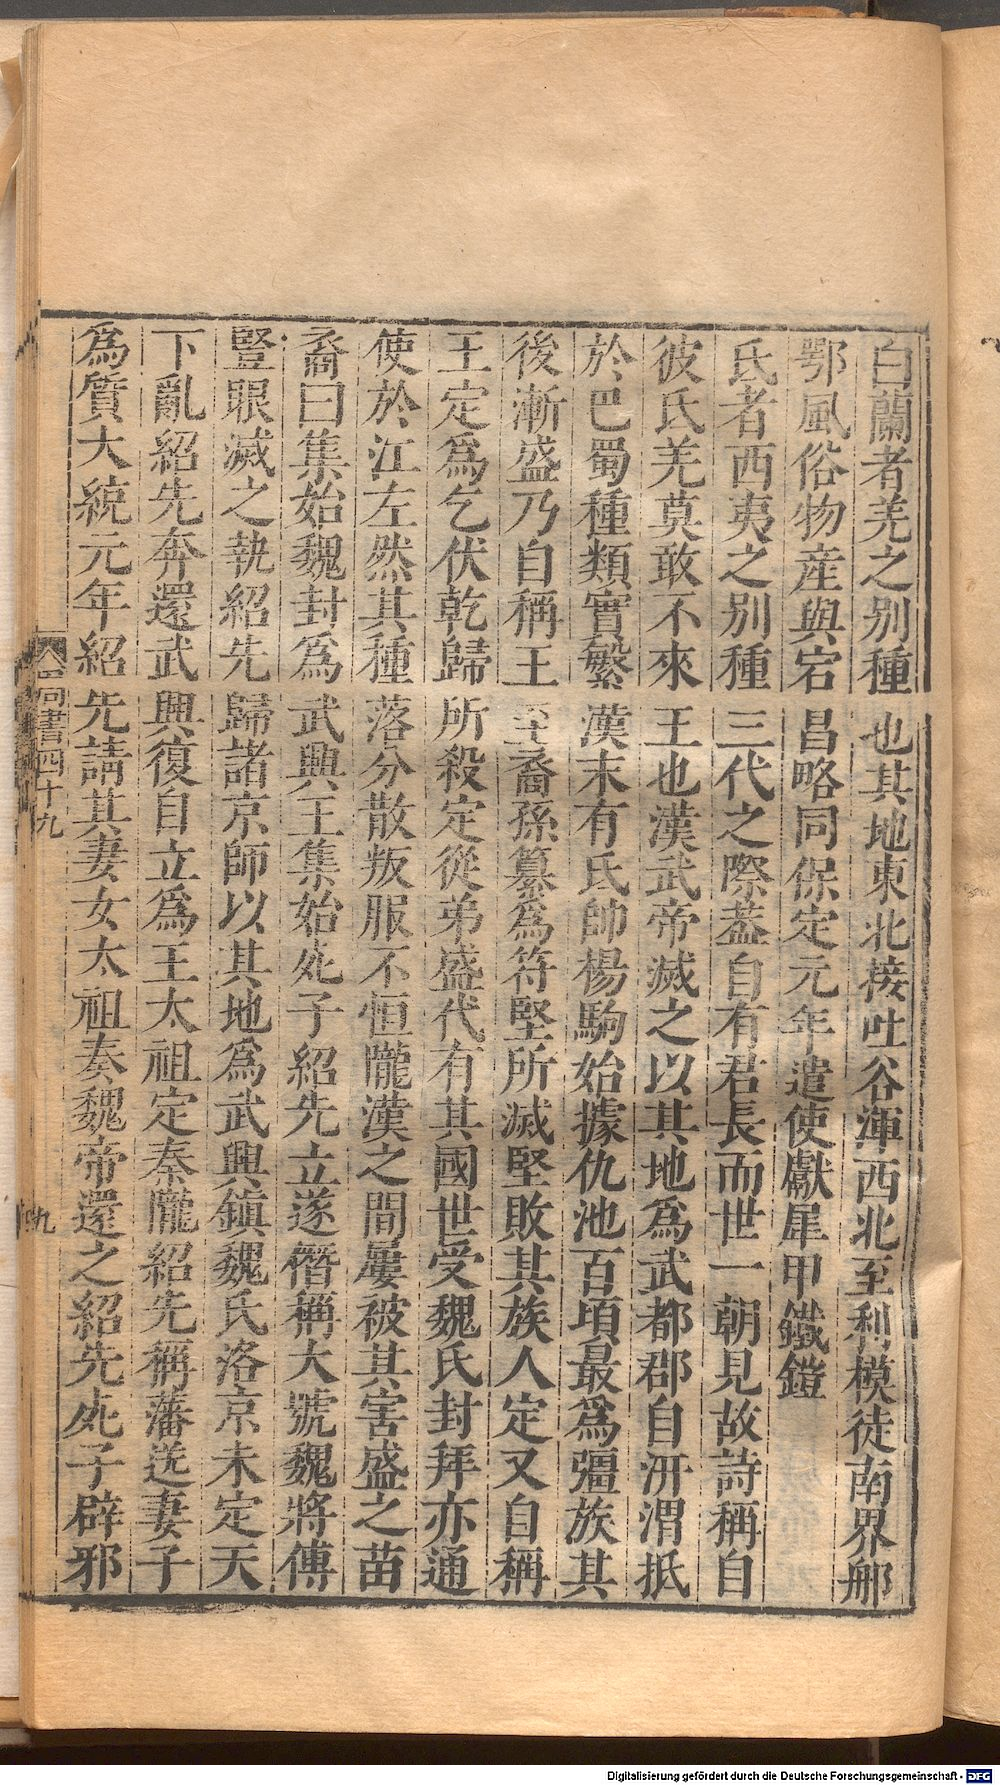 白蘭者羌之别種也其地東北接吐谷渾西北至利模徒南界郍
鄂風俗物産與宕昌略同保定元年遣使獻犀甲鐵鎧
氐者西夷之别種三代之際蓋自有君長而世一朝見故詩稱自
彼氐羌莫敢不來王也漢武帝滅之以其地爲武都郡自汧渭抵
於巴蜀種類實繁漢末有氐帥楊駒始據仇池百頃最爲彊族其
後漸盛乃自稱王至裔孫纂爲符堅所滅堅敗其族人定又自稱
王定爲乞伏乾歸所殺定從弟盛代有其國世受魏氏封拜亦通
使於江左然其種落分散叛服不恒隴漢之間屢被其害盛之苗
裔曰集始魏封爲武興王集始死子紹先立遂僭稱大號魏將傅
豎眼滅之執紹先歸諸京師以其地爲武興鎮魏氏洛京未定天
下亂紹先奔還武興復自立爲王太祖定秦隴紹先稱藩送妻子
爲質大統元年紹先請其妻女太祖奏魏帝還之紹先死子辟邪
書四十九
九
Digitalisierung gefördert durch die Deutsche Forschungsgemeinschaft - DFG